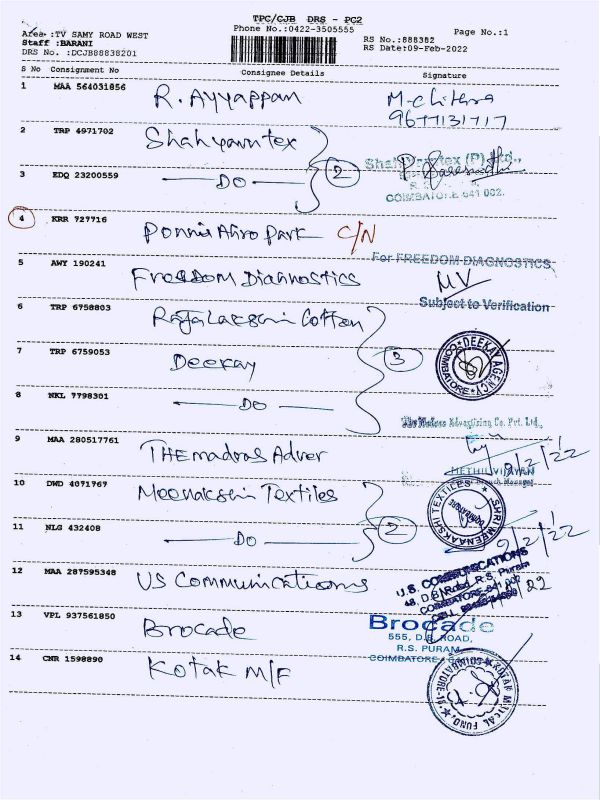 TPC/CJB DRS - PC2
Area :TV SAMY ROAD WEST
Phone No.:0422-3505555
Page No.:1
Staff :BARANI
RS No.:888382
DRS No. :DCJB88838201
RS Date:09-Feb-2022
S No Consignment No Consignee Details Signature
1 MAA 564031856 R. Ayyappan M-chithra
9677131717
2 TRP 4971702 Shahyarntex
3 EDQ 23200559 DO 2
tex (P) Ltd.,
COIMBATORE 641 002.
4 KRR 727716 Ponni Agro Park C/N
For FREEDOM DIAGNOSTICS
5 AWY 190241 Freedom Diagnostics
Subject to Verification
6 TRP 6758803 Rajalakshmi Cotton
7 TRP 6759053 Deekay 3
DEEKAY AGENCY COIMBATORE
8 NKL 7798301 DO
Advertising Co. Pvt. Ltd.,
9 MAA 280517761 THE madras Adver 9/2/22
METHIL VIJAYAN
Branch Manager
10 DWD 4071767 Meenakshi Textiles
SHRI MEENAAKSHI TEXTILES
11 NLG 432408 DO 2 9/2/22
12 MAA 287595348 US Communications
U.S. COMMUNICATIONS
48, D.B. Road, R.S. Puram
COIMBATORE-641 002
13 VPL 937561850 Brocade
Brocade
555, D.B. ROAD,
R.S. PURAM,
COIMBATORE
14 CNR 1598890 Kotak M/F
KOTAK MUTUAL FUND